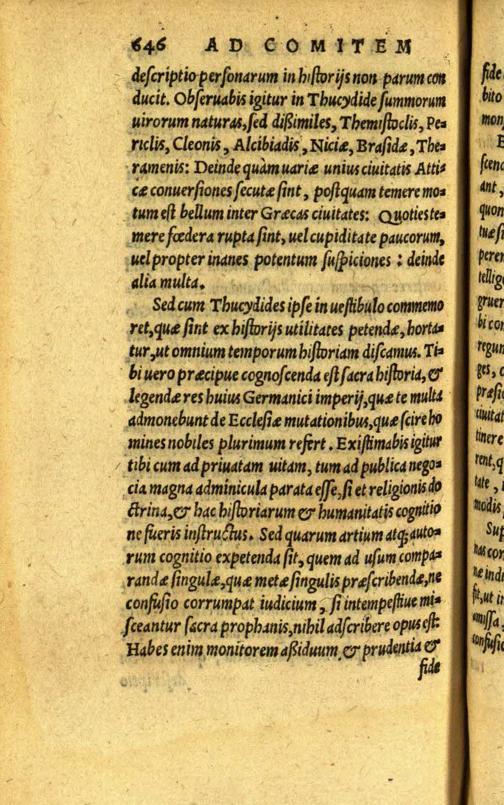 646 AD COMITEM
deſcriptio perſonarum in hiſtorijs non parum con
ducit. Obſeruabis igitur in Thucydide ſummorum
uirorum naturas, ſed dißimiles, Themiſtoclis, Pe-
riclis, Cleonis, Alcibiadis, Niciæ, Braſidæ, The-
ramenis: Deinde quàm uariæ unius ciuitatis Atti-
cæ conuerſiones ſecutæ ſint, poſtquam temere mo-
tum eſt bellum inter Græcas ciuitates: Quoties te-
mere fœdera rupta ſint, uel cupiditate paucorum,
uel propter inanes potentum ſuſpiciones: deinde
alia multa.
Sed cum Thucydides ipſe in ueſtibulo commemo
ret, quæ ſint ex hiſtorijs utilitates petendæ, horta-
tur, ut omnium temporum hiſtoriam diſcamus. Ti-
bi uero præcipue cognoſcenda eſt ſacra hiſtoria, &
legendæ res huius Germanici imperij, quæ te multa
admonebunt de Eccleſiæ mutationibus, quæ ſcire ho
mines nobiles plurimum refert. Exiſtimabis igitur
tibi cum ad priuatam uitam, tum ad publica nego-
cia magna adminicula parata eſſe, ſi et religionis do
ctrina, & hac hiſtoriarum & humanitatis cognitio
ne fueris inſtructus. Sed quarum artium atq; auto-
rum cognitio expetenda ſit, quem ad uſum compa-
randæ ſingulæ, quæ metæ ſingulis præſcribendæ, ne
confuſio corrumpat iudicium, ſi intempeſtiue mi-
ſceantur ſacra prophanis, nihil adſcribere opus eſt:
Habes enim monitorem aßiduum, & prudentia &
fide
fide
bito
mon
E
ſcend
ant,
quon
tuæ ſi
peren
tellig
gruer
bi con
regun
ges, c
præſi
ciuitat
tinere
rent, q
tate,
modis
Sup
nas con
ne inde
ſit, ut i
amiſſa
confuſio